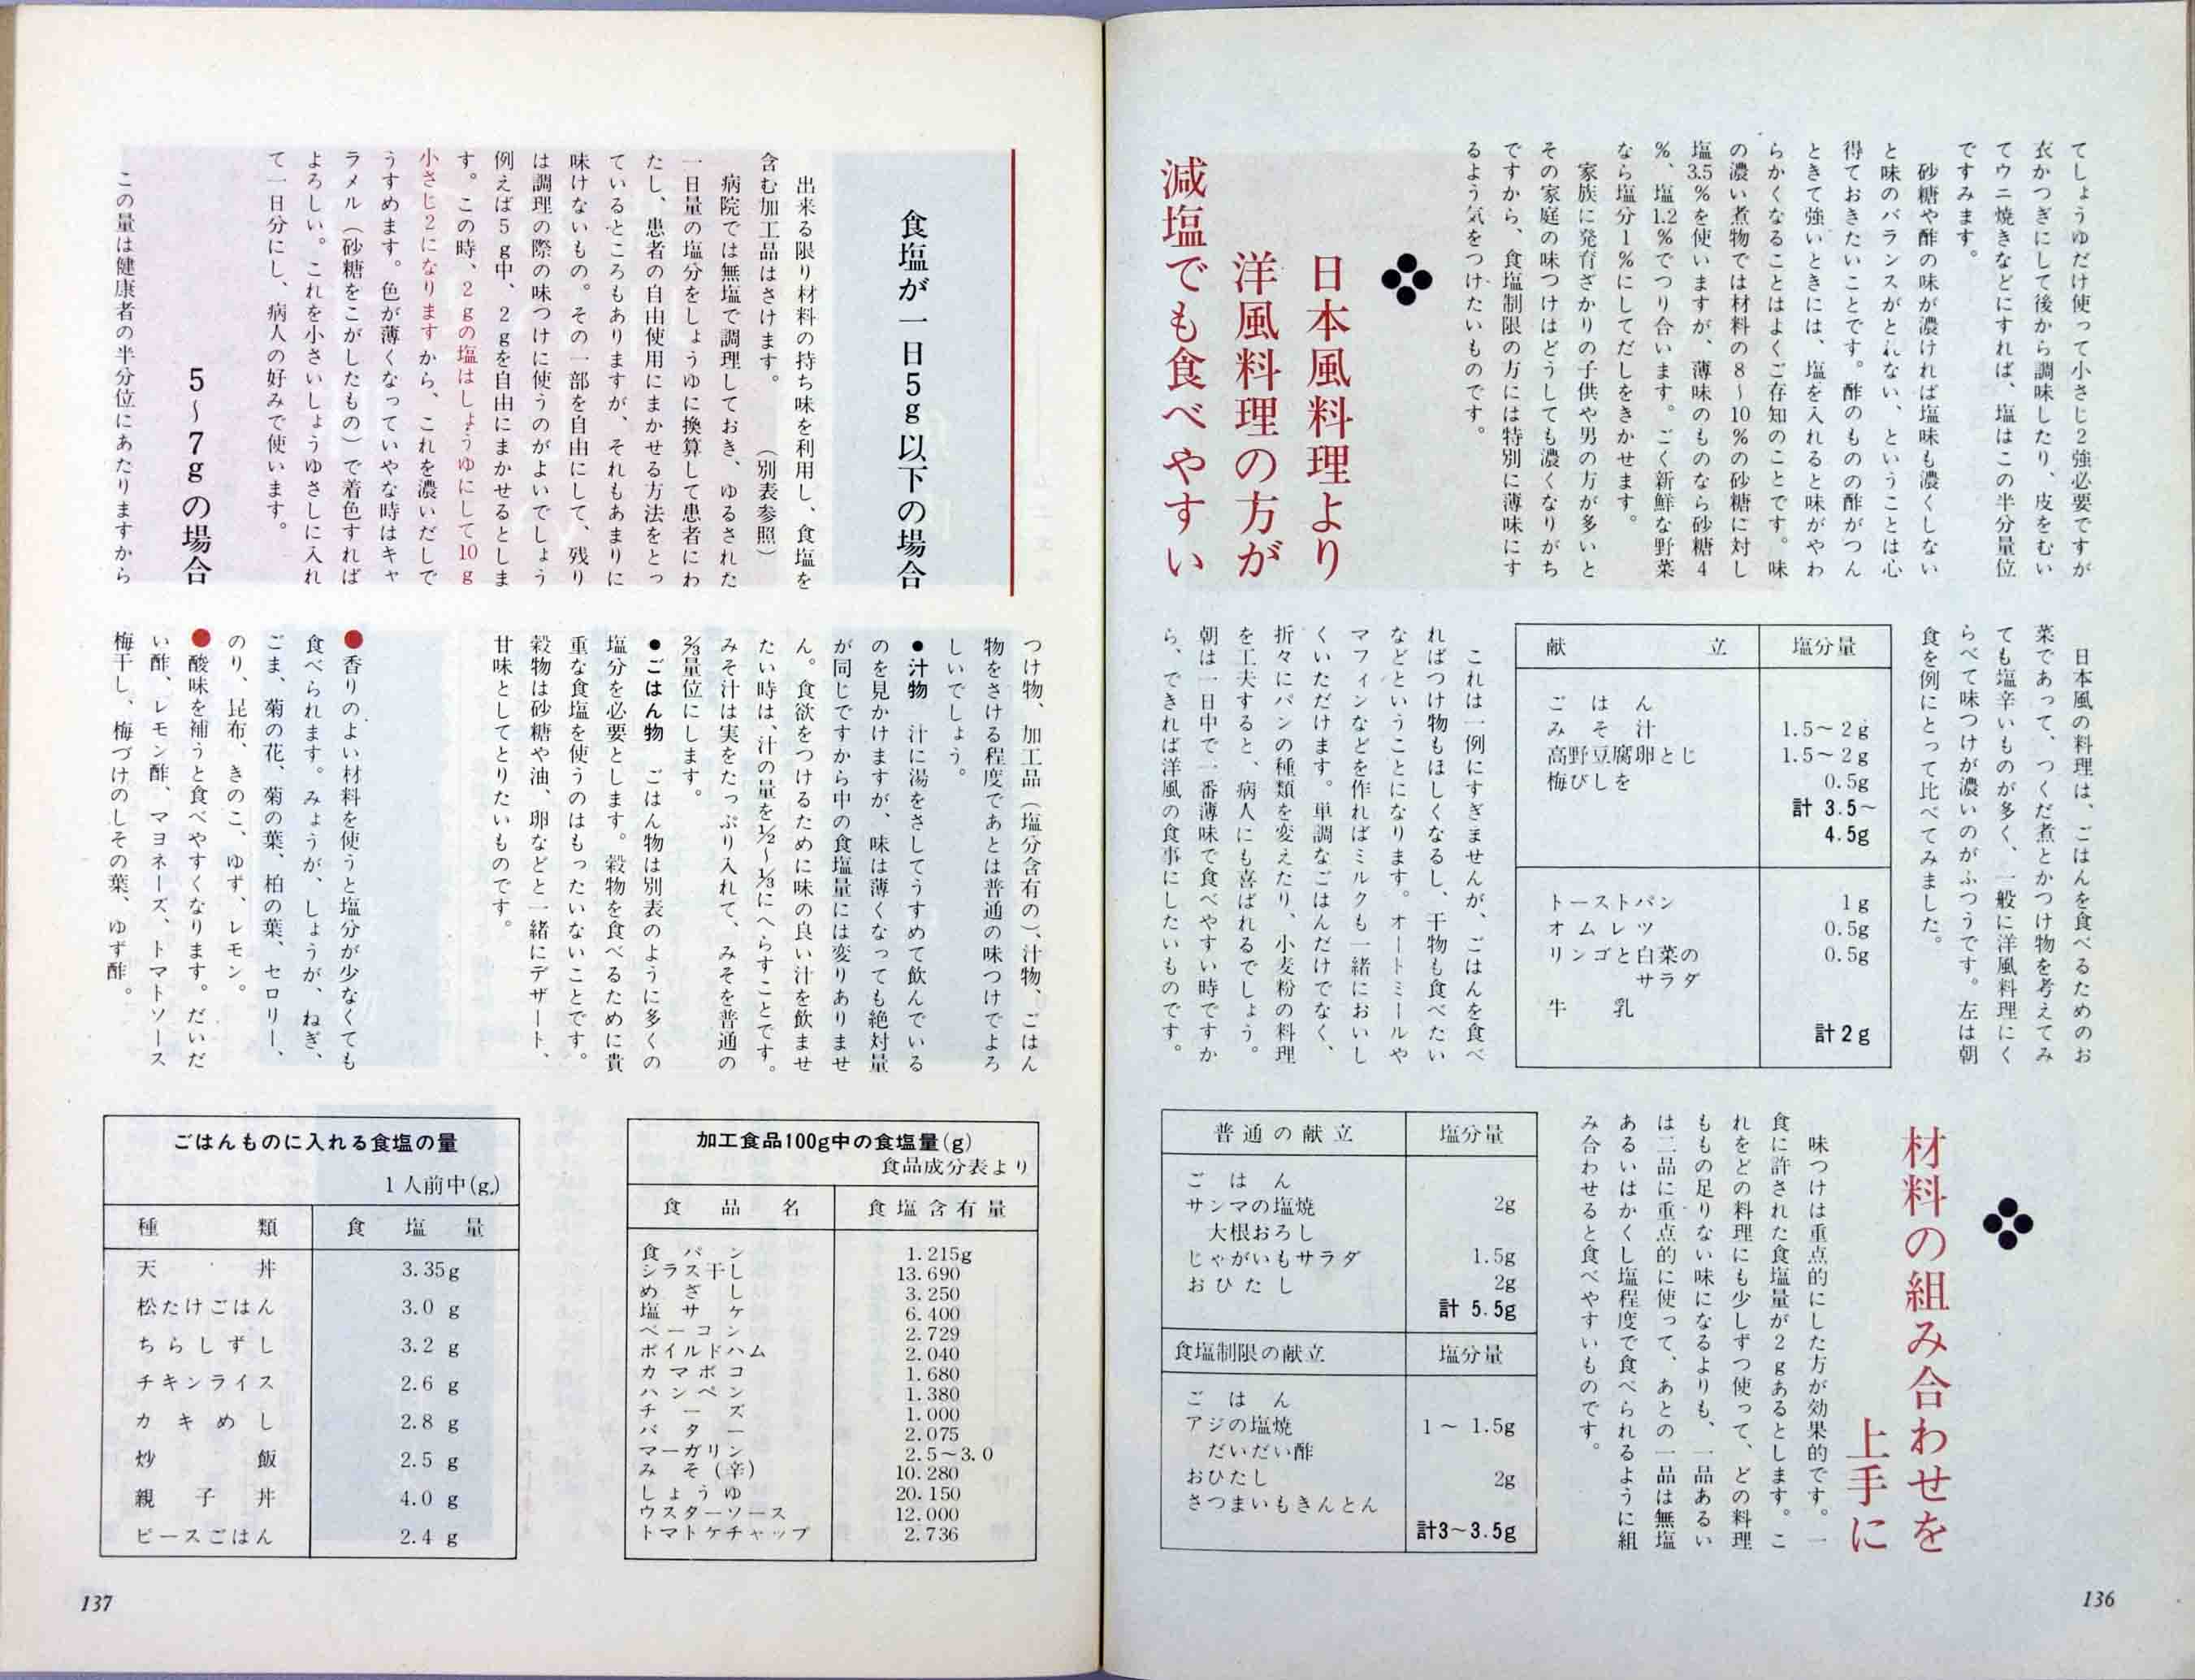 てしょうゆだけ使って小さじ2強必要ですが
衣かつぎにして後から調味したり、皮をむい
てウニ焼きなどにすれば、塩はこの半分量位
ですみます。
砂糖や酢の味が濃ければ塩味も濃くしない
と味のバランスがとれない、ということは心
得ておきたいことです。酢のものの酢がつん
ときて強いときには、塩を入れると味がやわ
らかくなることはよくご存知のことです。味
の濃い煮物では材料の8～10％の砂糖に対し
塩3.5％を使いますが、薄味のものなら砂糖4
％、塩1.2％でつり合います。ごく新鮮な野菜
なら塩分1％にしてだしをきかせます。
家族に発育ざかりの子供や男の方が多いと
その家庭の味つけはどうしても濃くなりがち
ですから、食塩制限の方には特別に薄味にす
るよう気をつけたいものです。
日本風料理より
洋風料理の方が
減塩でも食べやすい
日本風の料理は、ごはんを食べるためのお
菜であって、つくだ煮とかつけ物を考えてみ
ても塩辛いものが多く、一般に洋風料理にく
らべて味つけが濃いのがふつうです。左は朝
食を例にとって比べてみました。
献立 塩分量
ごはん
みそ汁 1.5～2g
高野豆腐卵とじ 1.5～2g
梅びしを 0.5g
計 3.5～
4.5g
トーストパン 1g
オムレツ 0.5g
リンゴと白菜の 0.5g
サラダ
牛乳
計2g
これは一例にすぎませんが、ごはんを食べ
ればつけ物もほしくなるし、干物も食べたい
などということになります。オートミールや
マフィンなどを作ればミルクも一緒においし
くいただけます。単調なごはんだけでなく、
折々にパンの種類を変えたり、小麦粉の料理
を工夫すると、病人にも喜ばれるでしょう。
朝は一日中で一番薄味で食べやすい時ですか
ら、できれば洋風の食事にしたいものです。
材料の組み合わせを
上手に
味つけは重点的にした方が効果的です。一
食に許された食塩量が2gあるとします。こ
れをどの料理にも少しずつ使って、どの料理
もも の足りない味になるよりも、一品あるい
は二品に重点的に使って、あとの一品は無塩
あるいはかくし塩程度で食べられるように組
み合わせると食べやすいものです。
普通の献立 塩分量
ごはん
サンマの塩焼 2g
大根おろし
じゃがいもサラダ 1.5g
おひたし 2g
計 5.5g
食塩制限の献立 塩分量
ごはん
アジの塩焼 1～1.5g
だいだい酢
おひたし 2g
さつまいもきんとん
計3～3.5g
136
食塩が一日5g以下の場合
出来る限り材料の持ち味を利用し、食塩を
含む加工品はさけます。（別表参照）
病院では無塩で調理しておき、ゆるされた
一日量の塩分をしょうゆに換算して患者にわ
たし、患者の自由使用にまかせる方法をとっ
ているところもありますが、それもあまりに
味けないもの。その一部を自由にして、残り
は調理の際の味つけに使うのがよいでしょう
例えば5g中、2gを自由にまかせるとしま
す。この時、2gの塩はしょうゆにして10g
小さじ2になりますから、これを濃いだしで
うすめます。色が薄くなっていやな時はキャ
ラメル（砂糖をこがしたもの）で着色すれば
よろしい。これを小さいしょうゆさしに入れ
て一日分にし、病人の好みで使います。
5～7gの場合
この量は健康者の半分位にあたりますから
つけ物、加工品（塩分含有の）、汁物、ごはん
物をさける程度であとは普通の味つけでよろ
しいでしょう。
●汁物 汁に湯をさしてうすめて飲んでいる
のを見かけますが、味は薄くなっても絶対量
が同じですから中の食塩量には変りありませ
ん。食欲をつけるために味の良い汁を飲ませ
たい時は、汁の量を1/2～1/3にへらすことです。
みそ汁は実をたっぷり入れて、みそを普通の
2/3量位にします。
●ごはん物 ごはん物は別表のように多くの
塩分を必要とします。穀物を食べるために貴
重な食塩を使うのはもったいないことです。
穀物は砂糖や油、卵などと一緒にデザート、
甘味としてとりたいものです。
●香りのよい材料を使うと塩分が少なくても
食べられます。みょうが、しょうが、ねぎ、
ごま、菊の花、菊の葉、柏の葉、セロリー、
のり、昆布、きのこ、ゆず、レモン。
●酸味を補うと食べやすくなります。だいだ
い酢、レモン酢、マヨネーズ、トマトソース
梅干し、梅づけのしその葉、ゆず酢。
加工食品100g中の食塩量(g)
食品成分表より
食品名 食塩含有量
食パン 1.215g
シラス干し 13.690
めざし 3.250
塩サケ 6.400
ベーコン 2.729
ボイルドハム 2.040
カマボコ 1.680
ハンペン 1.380
チーズ 1.000
バター 2.075
マーガリン 2.5～3.0
みそ(辛) 10.280
しょうゆ 20.150
ウスターソース 12.000
トマトケチャップ 2.736
ごはんものに入れる食塩の量
1人前中(g.)
種類 食塩量
天丼 3.35g
松たけごはん 3.0 g
ちらしずし 3.2 g
チキンライス 2.6 g
カキめし 2.8 g
炒飯 2.5 g
親子丼 4.0 g
ピースごはん 2.4 g
137